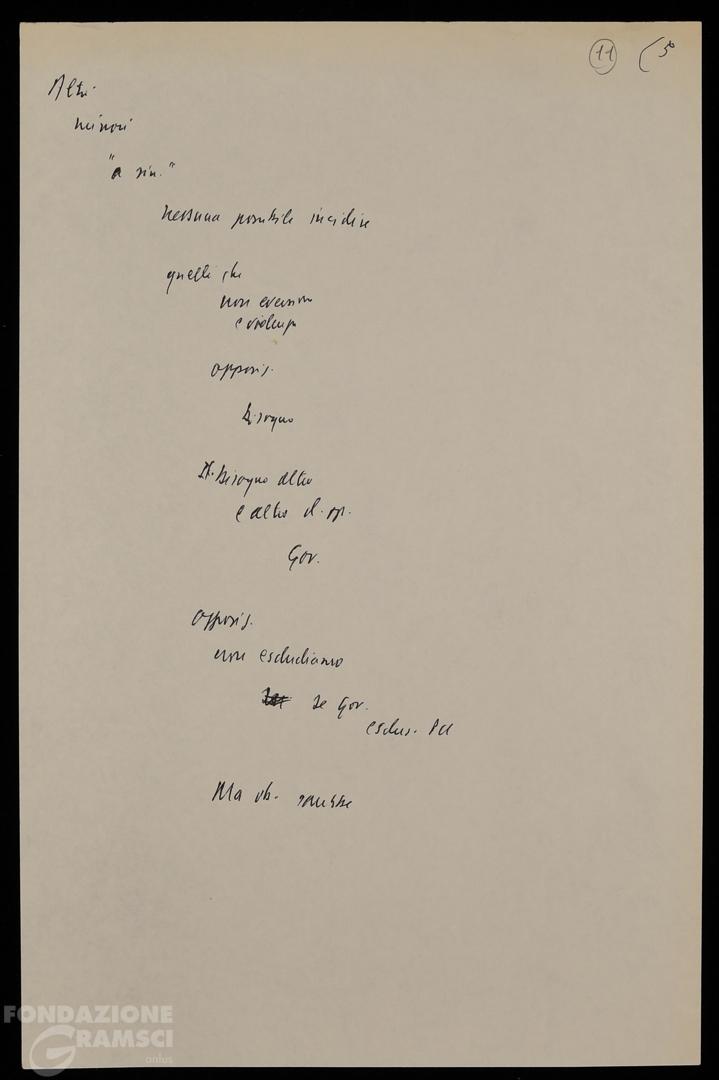 11 (5
Altri
minori
"a sin."
nessuna possibile incidere
quelli che
non eversion
e violenza
opposiz.
Bisogno
Bisogno altro
e altro d. op.
Gov.
opposiz.
non escludiamo
se Gov.
esclus. PCI
Ma ob. sarebbe
FONDAZIONE
GRAMSCI
onlus